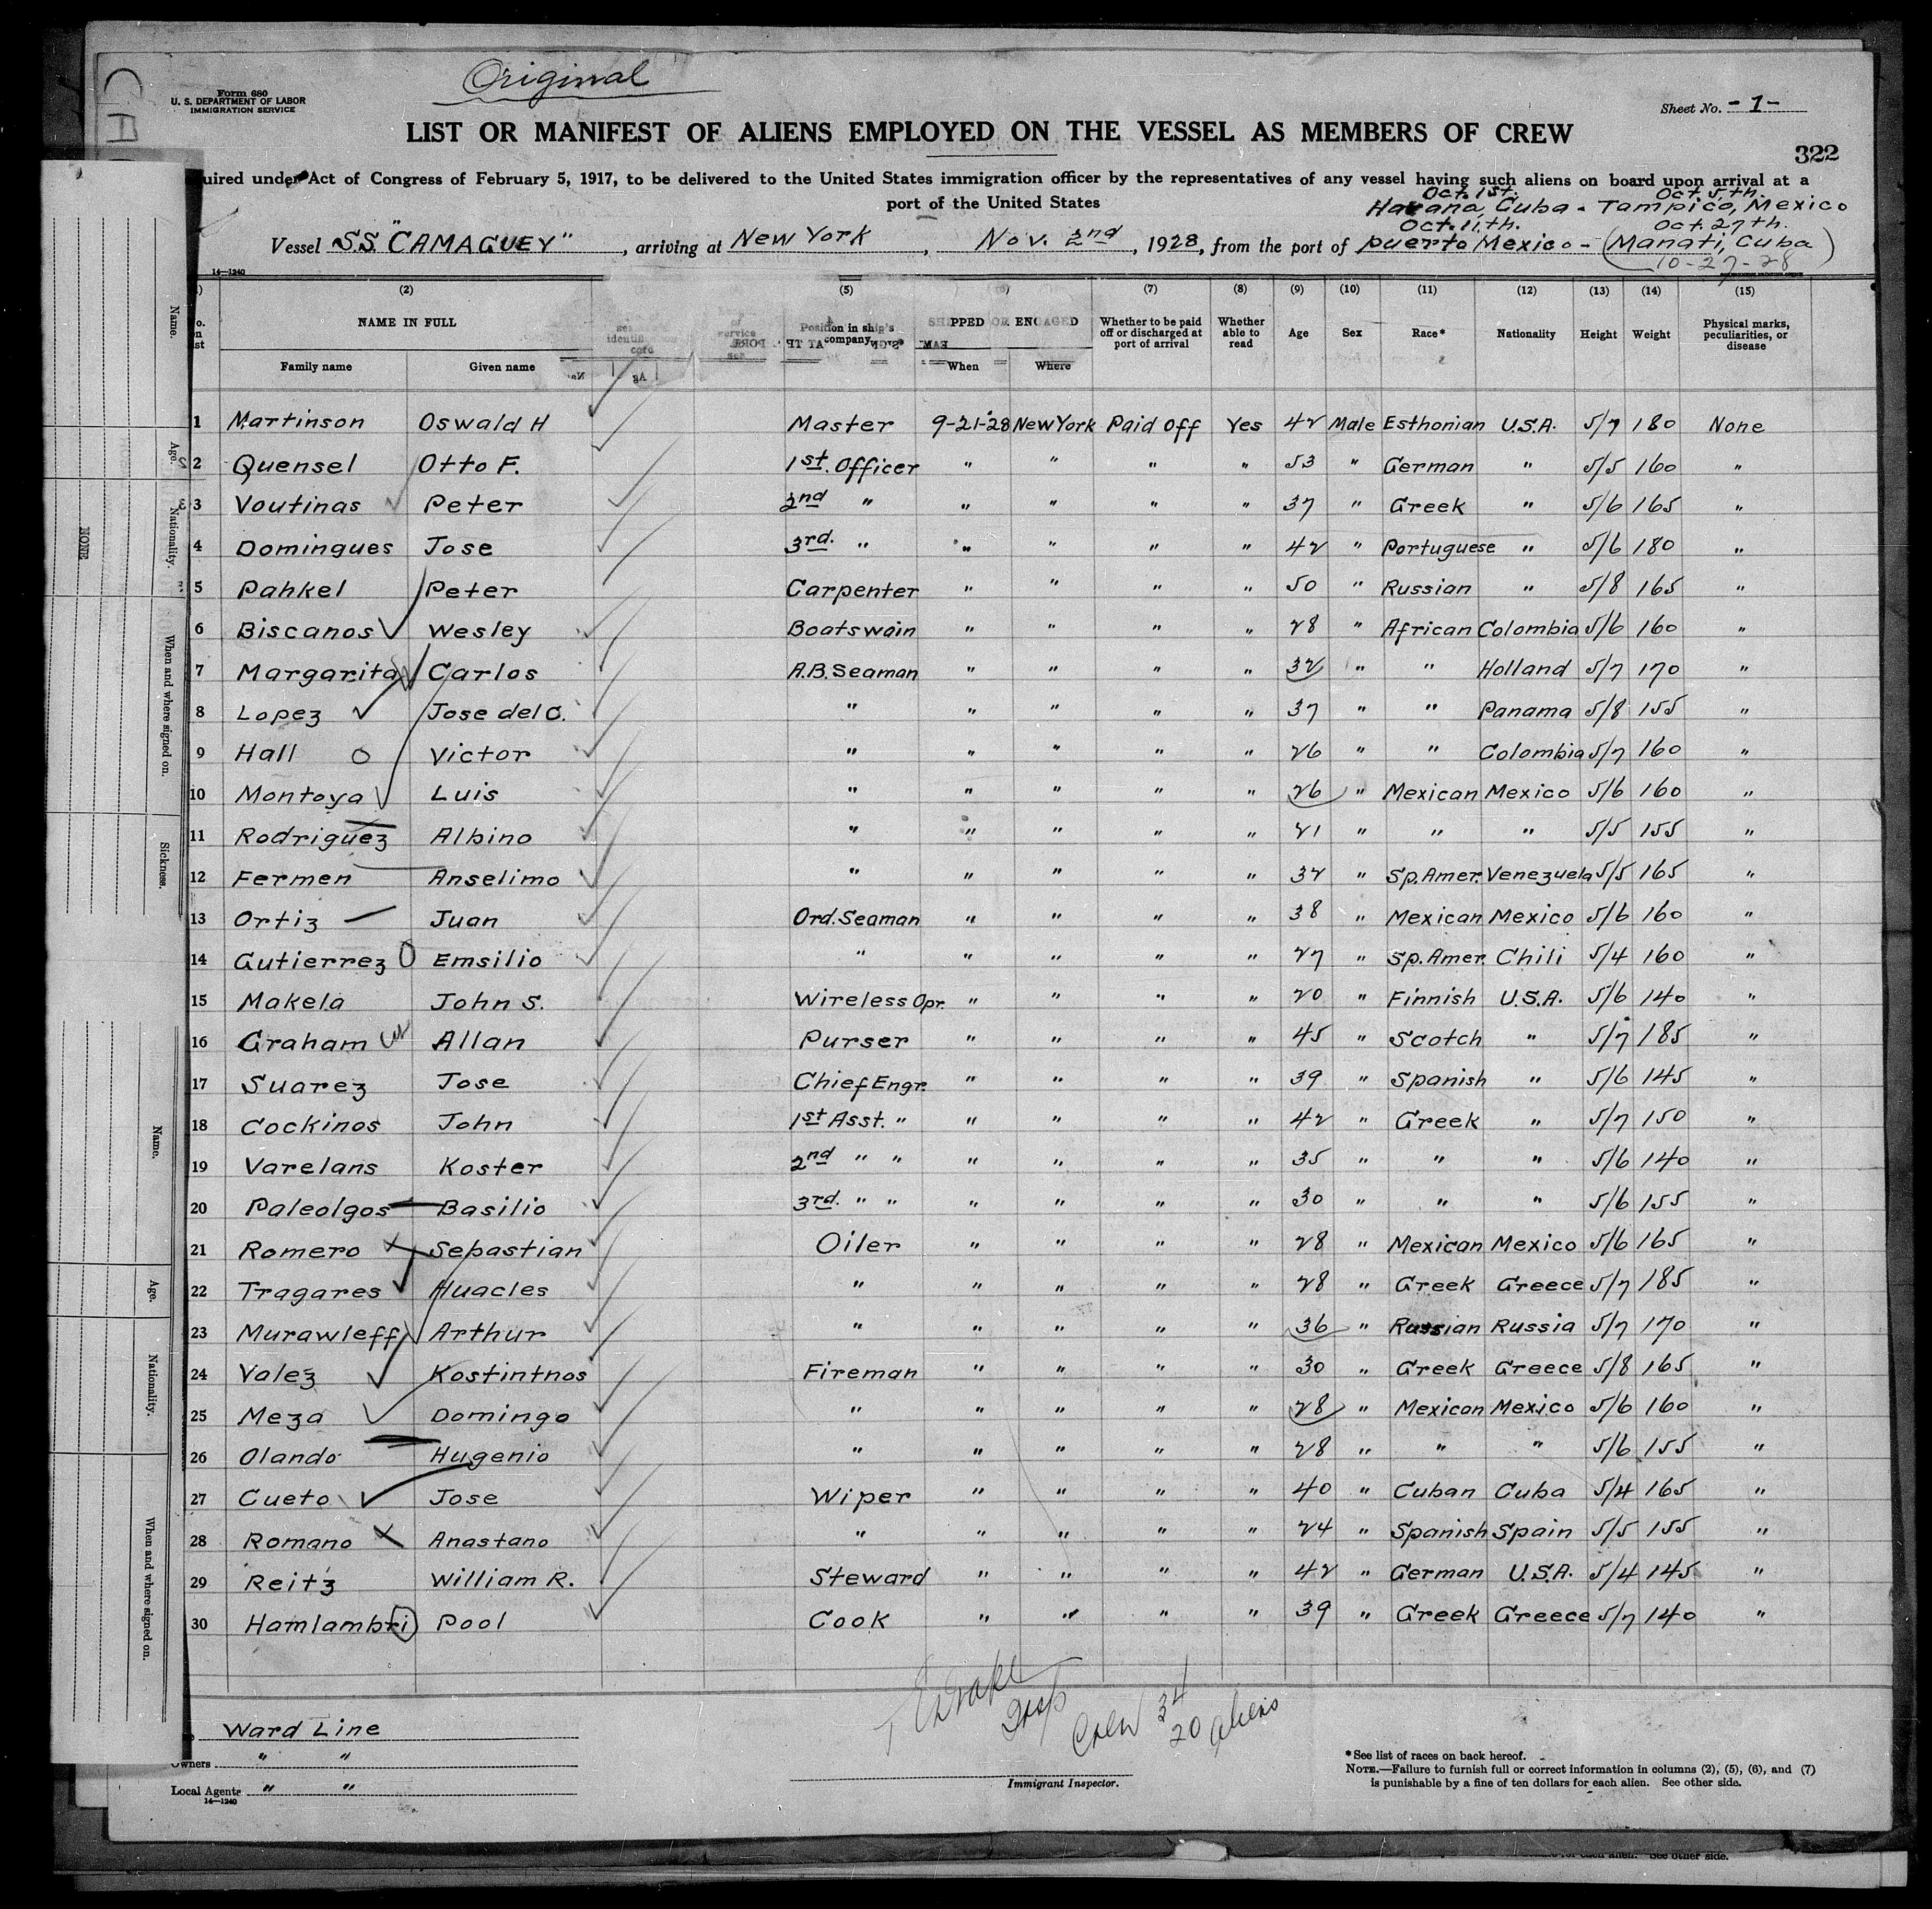 Original
Form 680
U. S. DEPARTMENT OF LABOR
IMMIGRATION SERVICE
Sheet No. -1-
LIST OR MANIFEST OF ALIENS EMPLOYED ON THE VESSEL AS MEMBERS OF CREW
322
uired under Act of Congress of February 5, 1917, to be delivered to the United States immigration officer by the representatives of any vessel having such aliens on board upon arrival at a
port of the United States
Oct. 1st. Oct. 5th.
Havana, Cuba - Tampico, Mexico
Oct. 11th. Oct. 27th.
Vessel S.S. "CAMAGUEY", arriving at New York, Nov. 2nd, 1928, from the port of Puerto Mexico - (Manati, Cuba)
10-27-28
14—1240
(2) (5) (7) (8) (9) (10) (11) (12) (13) (14) (15)
NAME IN FULL Position in ship's company PPED OR ENGAGED Whether to be paid off or discharged at port of arrival Whether able to read Age Sex Race* Nationality Height Weight Physical marks, peculiarities, or disease
Family name Given name When Where
1 Martinson Oswald H Master 9-21-28 New York Paid Off Yes 42 Male Esthonian U.S.A. 5/7 180 None
2 Quensel Otto F. 1st. Officer " " " " 53 " German " 5/5 160 "
3 Voutinas Peter 2nd " " " " " 37 " Greek " 5/6 165 "
4 Domingues Jose 3rd. " " " " " 42 " Portuguese " 5/6 180 "
5 Pahkel Peter Carpenter " " " " 50 " Russian " 5/8 165 "
6 Biscanos Wesley Boatswain " " " " 28 " African Colombia 5/6 160 "
7 Margarita Carlos A.B. Seaman " " " " 32 " " Holland 5/7 170 "
8 Lopez Jose del C. " " " " " 37 " " Panama 5/8 155 "
9 Hall Victor " " " " " 26 " " Colombia 5/7 160 "
10 Montoya Luis " " " " " 26 " Mexican Mexico 5/6 160 "
11 Rodriguez Albino " " " " " 21 " " " 5/5 155 "
12 Fermen Anselimo " " " " " 32 " Sp. Amer. Venezuela 5/5 165 "
13 Ortiz Juan Ord. Seaman " " " " 38 " Mexican Mexico 5/6 160 "
14 Gutierrez Emsilio " " " " " 27 " Sp. Amer. Chili 5/4 160 "
15 Makela John S. Wireless Opr. " " " " 20 " Finnish U.S.A. 5/6 140 "
16 Graham Allan Purser " " " " 45 " Scotch " 5/7 185 "
17 Suarez Jose Chief Engr. " " " " 39 " Spanish " 5/6 145 "
18 Cockinos John 1st Asst. " " " " " 42 " Greek " 5/7 150 "
19 Varelans Koster 2nd " " " " " " 35 " " " 5/6 140 "
20 Paleolgos Basilio 3rd. " " " " " " 30 " " " 5/6 155 "
21 Romero Sebastian Oiler " " " " 28 " Mexican Mexico 5/6 165 "
22 Tragares Huacles " " " " " 28 " Greek Greece 5/7 185 "
23 Murawleff Arthur " " " " " 36 " Russian Russia 5/7 170 "
24 Valez Kostintnos Fireman " " " " 30 " Greek Greece 5/8 165 "
25 Meza Domingo " " " " " 28 " Mexican Mexico 5/6 160 "
26 Olando Hugenio " " " " " 28 " " " 5/6 155 "
27 Cueto Jose Wiper " " " " 40 " Cuban Cuba 5/4 165 "
28 Romano Anastano " " " " " 24 " Spanish Spain 5/5 155 "
29 Reitz William R. Steward " " " " 42 " German U.S.A. 5/4 145 "
30 Hamlambri Pool Cook " " " " 39 " Greek Greece 5/7 140 "
Crew 34
20 aliens
Ward Line
Owners " "
Local Agents " "
14—1240
Immigrant Inspector.
*See list of races on back hereof.
NOTE.—Failure to furnish full or correct information in columns (2), (5), (6), and (7)
is punishable by a fine of ten dollars for each alien. See other side.
See other side.
Name.
Age.
Nationality.
NONE
When and where signed on.
Sickness.
Name.
Age.
Nationality.
When and where signed on.